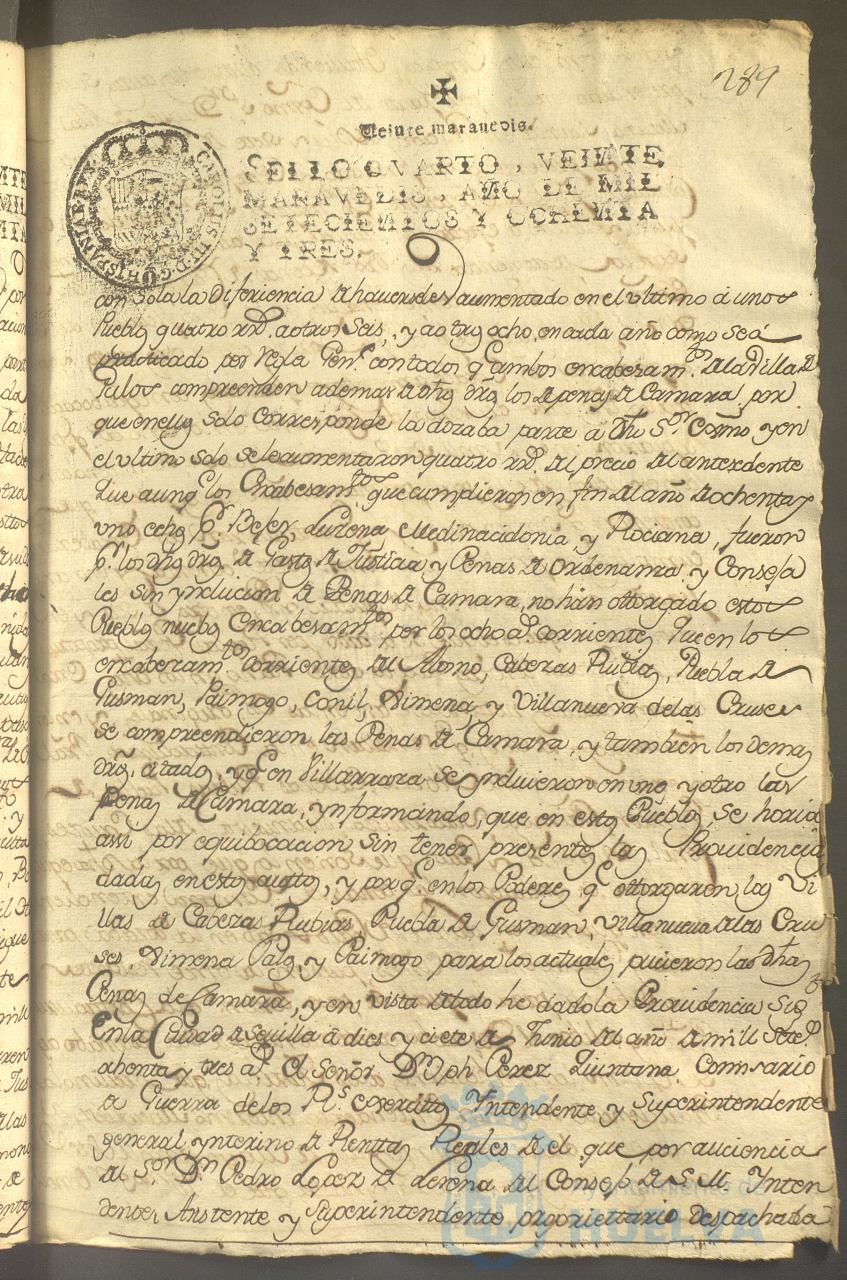 289
Veinte maravedis.
SELLO QVARTO, VEINTE
MARAVEDIS, AÑO DE MIL
SETECIENTOS Y OCHENTA
Y TRES.
CAROLUS III D. G. HISPANIAR. REX
con sola la diferiencia de haverseles aumentado en el ultimo á unos
Pueblos quatro rr.s a otros seis, y a otros ocho, en cada año como se á
practicado por regla Gen.l con todos q.e ambos encabesam.tos de la Villa de
Palos compreenden ademas de dhos dros los de penas de Camara, por
que en ellos solo corresponde la dozaba parte a Dho S.or Cosmo y en
el ultimo solo se le aumentaron quatro rr.s del precio del antecedente
Que aunq.e los Encabesam.tos que cumplieron en fin del año de ochenta y
uno echos p.r Bejer, Lucena, Medinacidonia, y Rociana, fueron
p.r los dhos dros de Gastos de Justicia, y Penas de Ordenanza, y Conseja
les sin ynclucion de Penas de Camara, no hán ottorgado estos
Pueblos nuebos Encabesam.tos por los ocho a.s corrientes Que en los
encabezam.tos corrientes del Almo, Cabezas Rubias, Puebla de
Gusman, Paimogo, Conil, Ximena, y Villanueva de las Cruses
se compreendieron las Penas de Camara, y tambien los demas
dros citados, y q.e en Villarrasa se yncluieron en uno y otro las
Penas de Camara, ynformando, que en estos Pueblos se horia
assi por equibocacion sin tener presentes las Providencias
dadas en estos autos, y por q.e en los Poderes q.e ottorgaron las Vi
llas de Cabezas Rubias Puebla de Gusman, Villanueva de las Cru
ses, Ximena Palos, y Paimogo para los actuales pucieron las dhas
Penas de Camara, y en vista de todo he dado la Providencia Sig.te
En la Ciudad de Sevilla á dies y ciete de Junio del año de mill Sete.s
ochenta y tres a.s El Señor D.n Jph Perez Quintana Comisario
de Guerra de los R.s exercitos Yntendente y Superintendente
general ynterino de Renttas Reales de el que por auciencia
del S.or D.n Pedro Lopez de Lerena del Consejo de S. M. Ynten
dente, Asistente y Superintendente propriettario despachaba
Ayuntamiento de
HUELVA